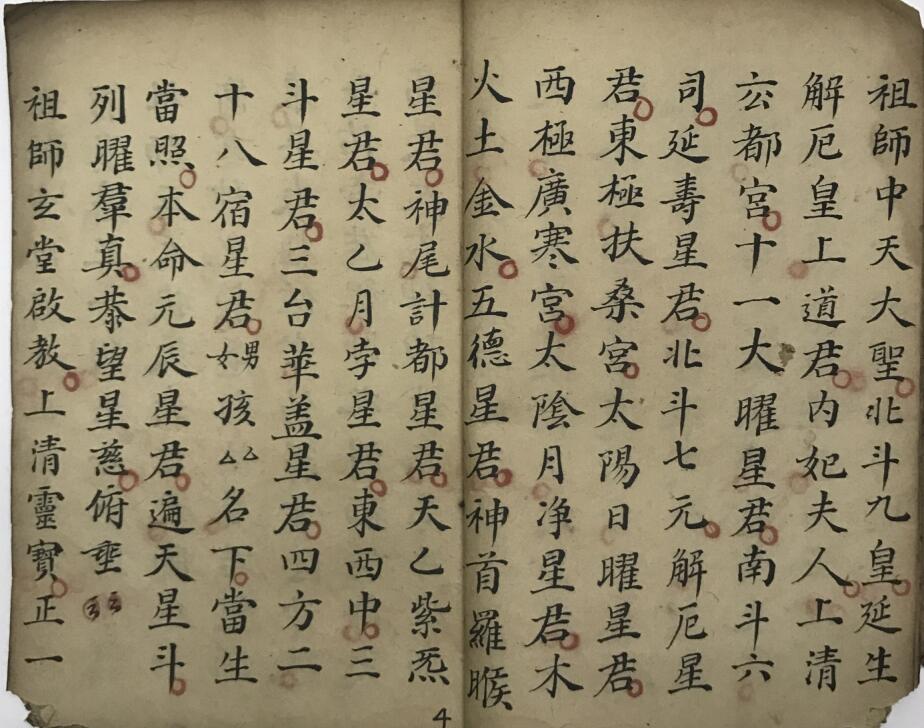 祖師中天大聖北斗九皇延生
解厄皇上道君内妃夫人上清
六都宮十一大曜星君南斗六
司延壽星君北斗七元解厄星
君東極扶桑宮太陽日曜星君
西極廣寒宮太陰月净星君木
火土金水五德星君神首羅睺
星君神尾計都星君天乙紫炁
星君太乙月孛星君東西中三
斗星君三台華盖星君四方二
十八宿星君男女孩厶乙厶名下當生
當照本命元辰星君遍天星斗
列曜羣真恭望星慈俯垂
祖師玄堂啟教上清靈寶正一
4